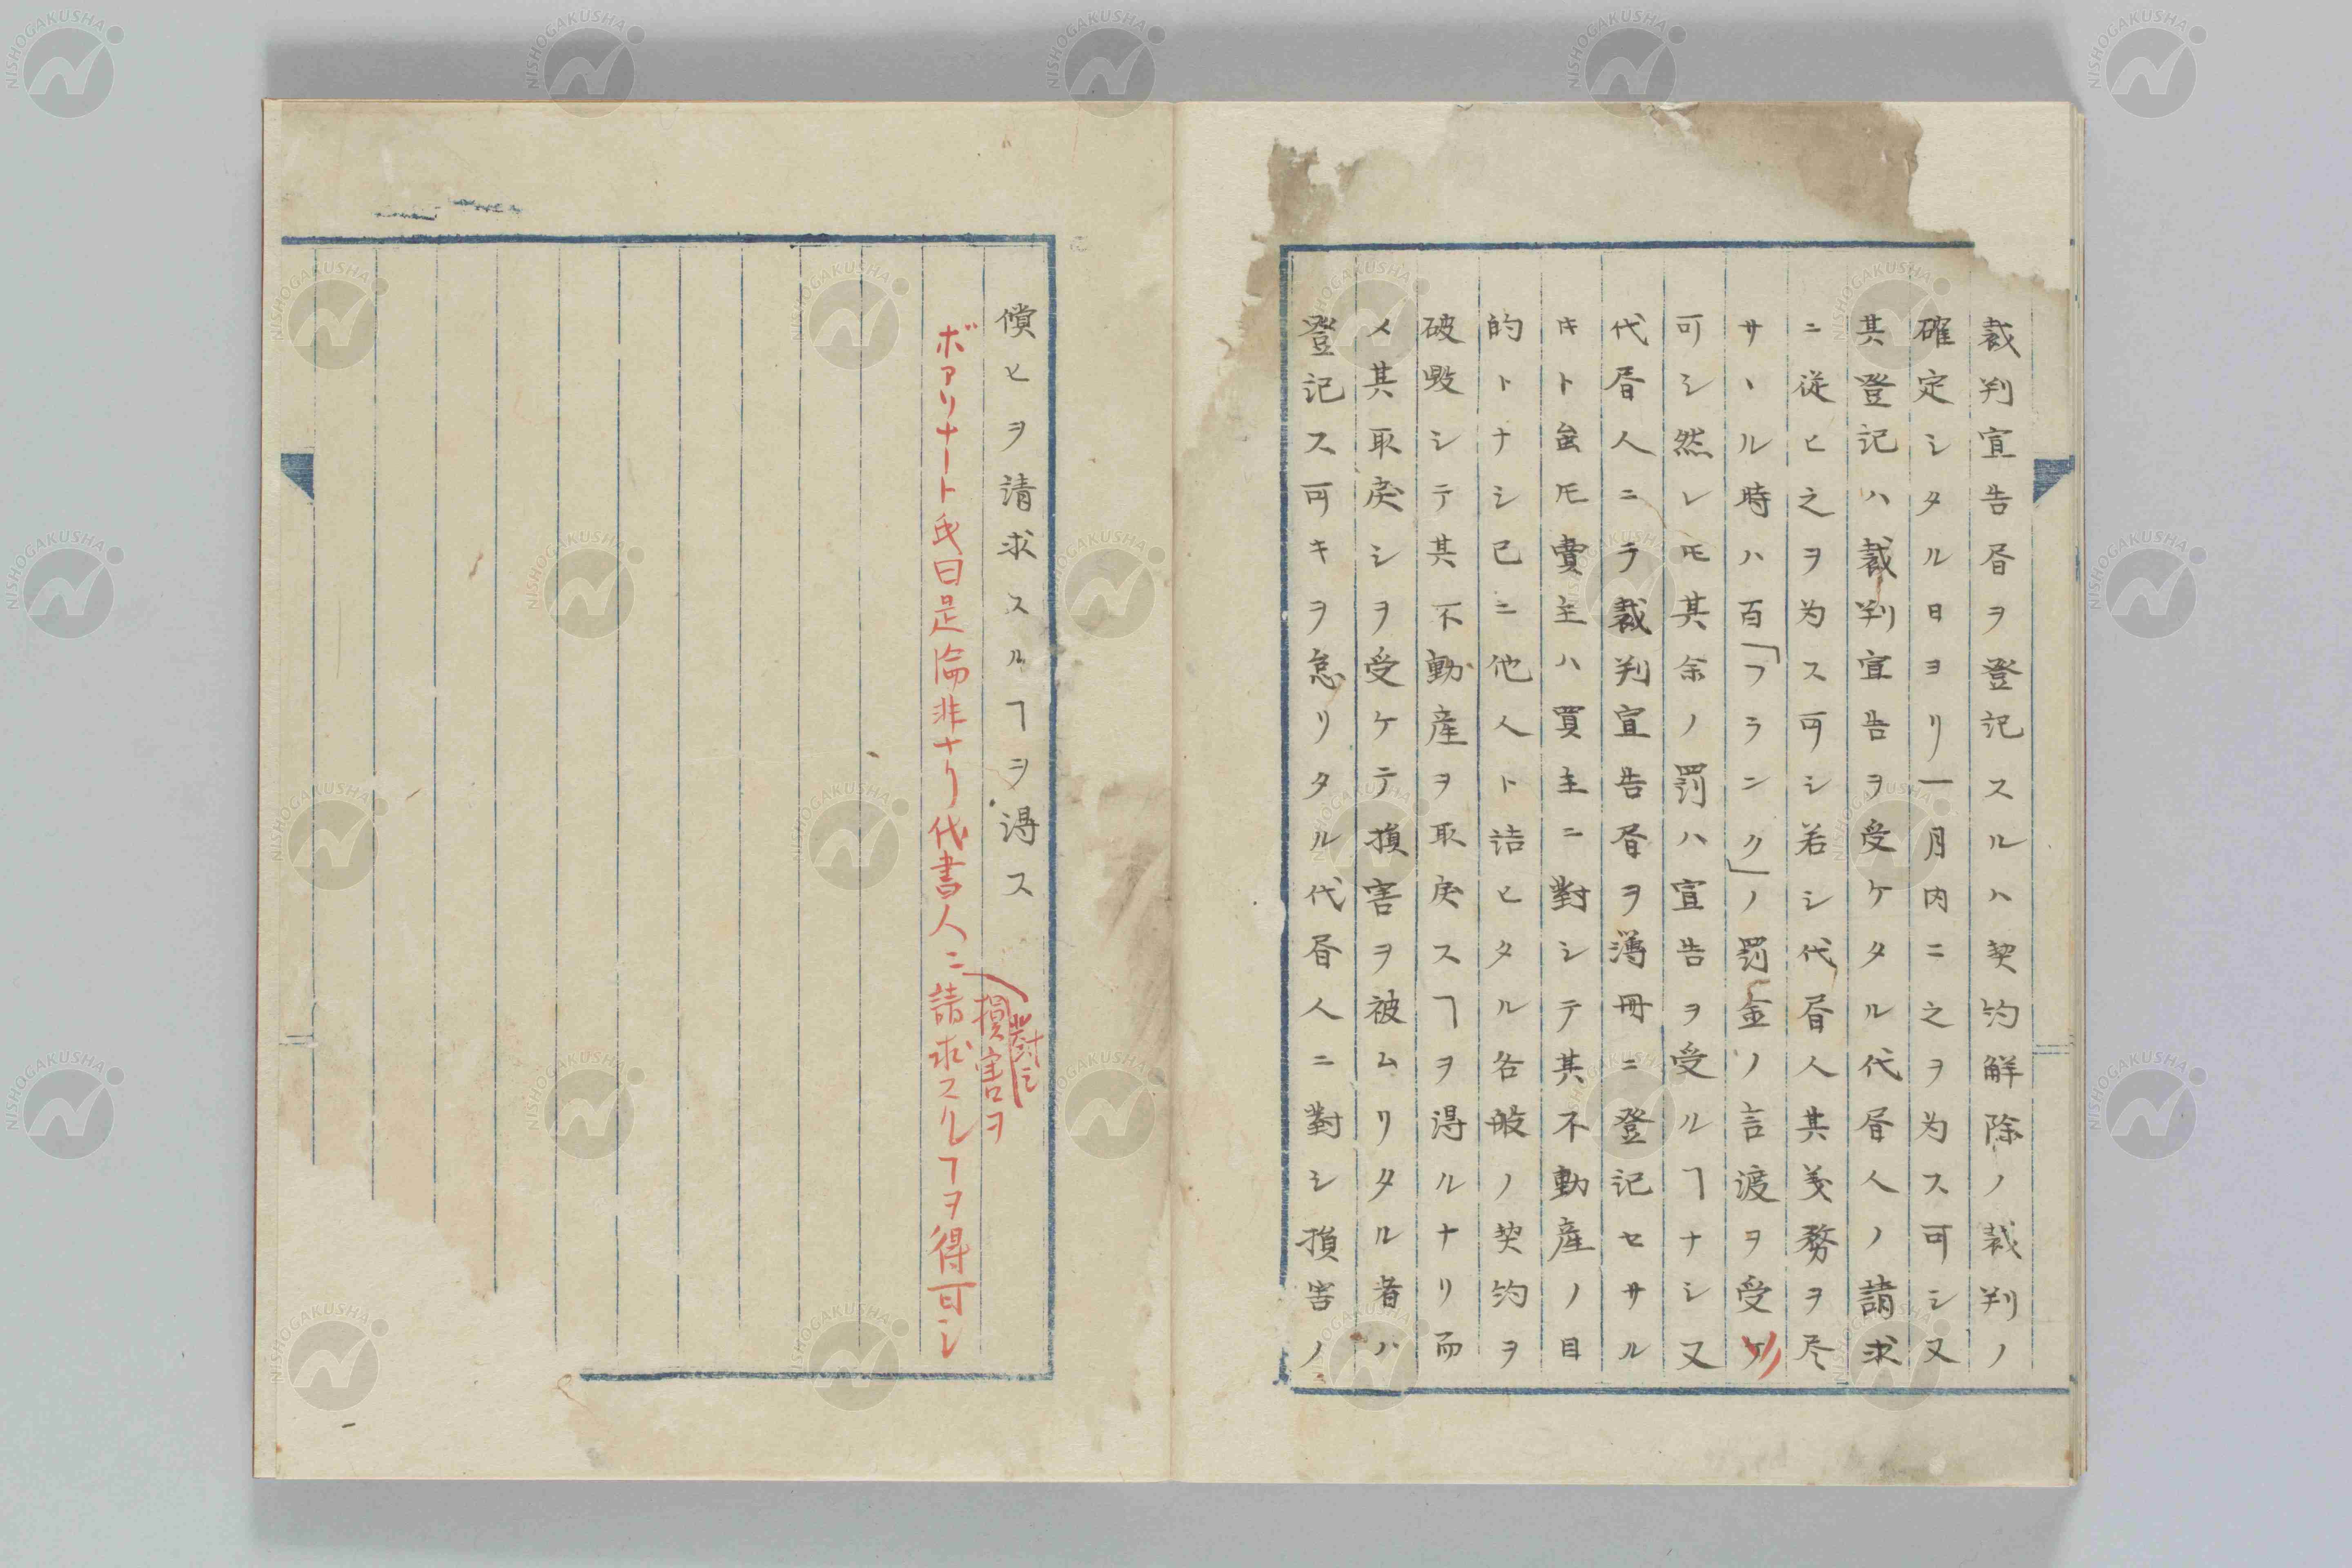 裁判宣告書ヲ登記スルハ契約解除ノ裁判ノ
確定シタル日ヨリ一月内ニ之ヲ为ス可シ又
其登記ハ裁判宣告ヲ受ケタル代書人ノ請求
ニ従ヒ之ヲ为ス可シ若シ代書人其義務ヲ尽
サヽル時ハ百「フランク」ノ罰金ノ言渡ヲ受ケ
可シ然レ𪜈其余ノ罰ハ宣告ヲ受ルヿナシ又
代書人ニテ裁判宣告書ヲ簿冊ニ登記セサル
キト雖𪜈賣主ハ買主ニ對シテ其不動産ノ目
的トナシ已ニ他人ト結ヒタル各般ノ契約ヲ
破毀シテ其不動産ヲ取戻スヿヲ得ルナリ而
メ其取戻シヲ受ケテ損害ヲ被ムリタル者ハ
登記ス可キヲ怠リタル代書人ニ對シ損害ノ
償ヒヲ請求スルヿヲ得ス
ボアリナート氏曰是論非ナリ代書人ニ對シ損害ヲ請求スルヿヲ得可シ
NISHOGAKUSHA